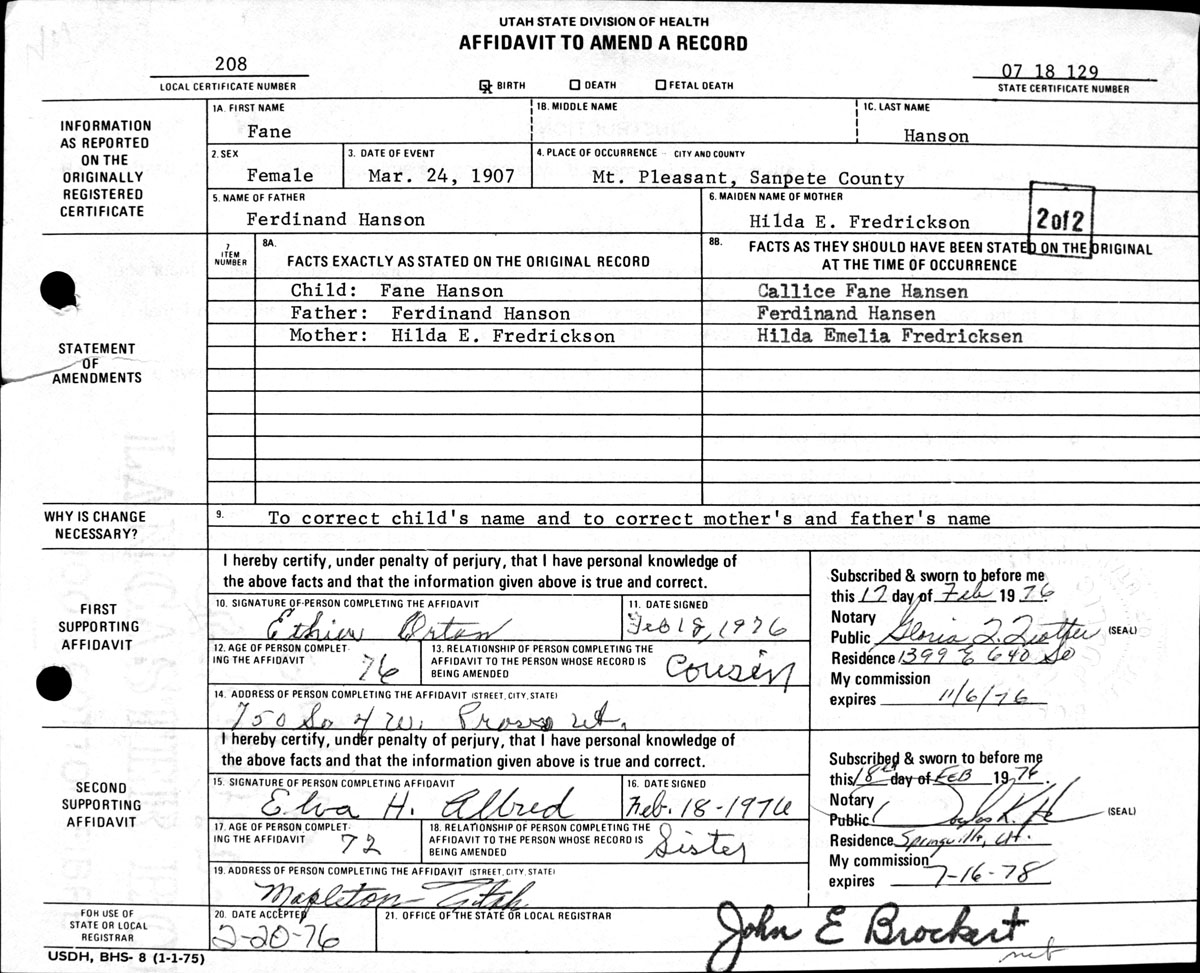 UTAH STATE DIVISION OF HEALTH
AFFIDAVIT TO AMEND A RECORD
208
LOCAL CERTIFICATE NUMBER
BIRTH DEATH FETAL DEATH
07 18 129
STATE CERTIFICATE NUMBER
INFORMATION
AS REPORTED
ON THE
ORIGINALLY
REGISTERED
CERTIFICATE
1A. FIRST NAME
Fane
1B. MIDDLE NAME
1C. LAST NAME
Hanson
2. SEX
Female
3. DATE OF EVENT
Mar. 24, 1907
4. PLACE OF OCCURRENCE - CITY AND COUNTY
Mt. Pleasant, Sanpete County
5. NAME OF FATHER
Ferdinand Hanson
6. MAIDEN NAME OF MOTHER
Hilda E. Fredrickson
2 of 2
STATEMENT
OF
AMENDMENTS
7
ITEM
NUMBER
8A.
FACTS EXACTLY AS STATED ON THE ORIGINAL RECORD
8B.
FACTS AS THEY SHOULD HAVE BEEN STATED ON THE ORIGINAL
AT THE TIME OF OCCURRENCE
Child: Fane Hanson
Callice Fane Hansen
Father: Ferdinand Hanson
Ferdinand Hansen
Mother: Hilda E. Fredrickson
Hilda Emelia Fredricksen
WHY IS CHANGE
NECESSARY?
9.
To correct child's name and to correct mother's and father's name
FIRST
SUPPORTING
AFFIDAVIT
I hereby certify, under penalty of perjury, that I have personal knowledge of
the above facts and that the information given above is true and correct.
10. SIGNATURE OF PERSON COMPLETING THE AFFIDAVIT
Orton
11. DATE SIGNED
Feb 18, 1976
12. AGE OF PERSON COMPLET-
ING THE AFFIDAVIT
76
13. RELATIONSHIP OF PERSON COMPLETING THE
AFFIDAVIT TO THE PERSON WHOSE RECORD IS
BEING AMENDED
Cousin
14. ADDRESS OF PERSON COMPLETING THE AFFIDAVIT (STREET, CITY, STATE)
750 So 4 W. Provo Ut.
Subscribed & sworn to before me
this 17 day of Feb 19 76
Notary
Public Gloria
(SEAL)
Residence 1399 E 640 So
My commission
expires 11/6/76
SECOND
SUPPORTING
AFFIDAVIT
I hereby certify, under penalty of perjury, that I have personal knowledge of
the above facts and that the information given above is true and correct.
15. SIGNATURE OF PERSON COMPLETING AFFIDAVIT
Elva H. Allred
16. DATE SIGNED
Feb. 18-1976
17. AGE OF PERSON COMPLET-
ING THE AFFIDAVIT
72
18. RELATIONSHIP OF PERSON COMPLETING THE
AFFIDAVIT TO THE PERSON WHOSE RECORD IS
BEING AMENDED
Sister
19. ADDRESS OF PERSON COMPLETING THE AFFIDAVIT (STREET, CITY, STATE)
Mapleton Utah
Subscribed & sworn to before me
this 18th day of FEB 19 76
Notary
Public
(SEAL)
Residence Springville, Ut.
My commission
expires 7-16-78
FOR USE OF
STATE OR LOCAL
REGISTRAR
20. DATE ACCEPTED
2-20-76
21. OFFICE OF THE STATE OR LOCAL REGISTRAR
John E Brockert
USDH, BHS- 8 (1-1-75)